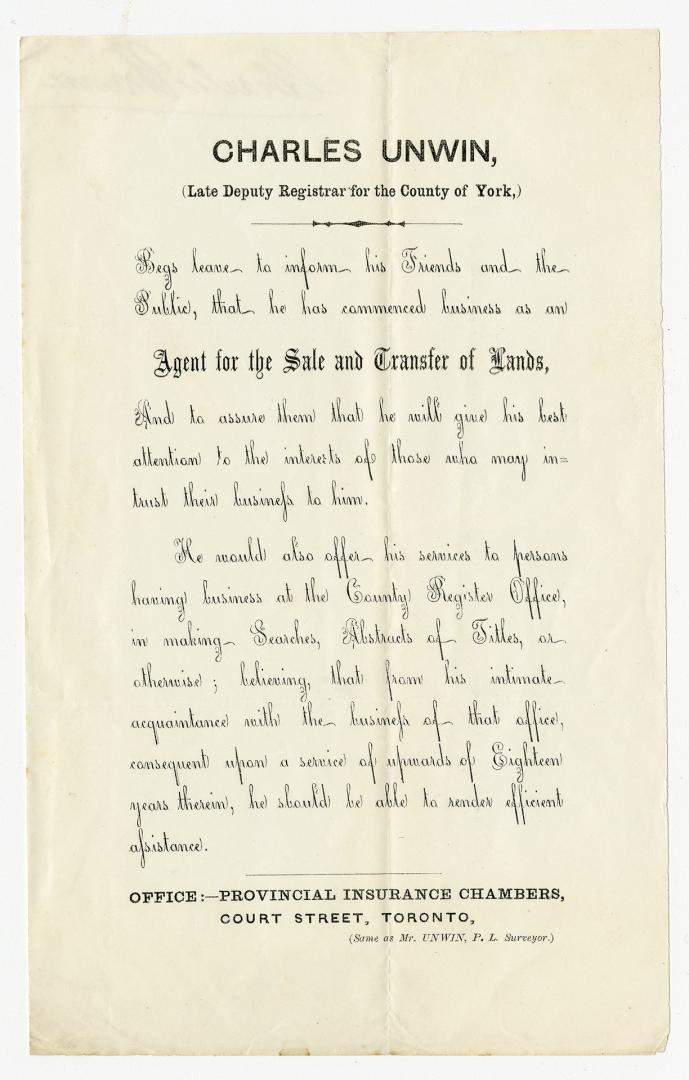 CHARLES UNWIN,
(Late Deputy Registrar for the County of York,)
Begs leave to inform his Friends and the
Public, that he has commenced business as an
Agent for the Sale and Transfer of Lands,
And to assure them that he will give his best
attention to the interests of those who may in=
trust their busineſs to him.
He would also offer his services to persons
having business at the County Register Office,
in making Searches, Abstracts of Titles, or
otherwise ; believing, that from his intimate
acquaintance with the busineſs of that office,
consequent upon a service of upwards of Eighteen
years therein, he should be able to render efficient
aſsistance.
OFFICE:—PROVINCIAL INSURANCE CHAMBERS,
COURT STREET, TORONTO,
(Same as Mr. UNWIN, P. L. Surveyor.)